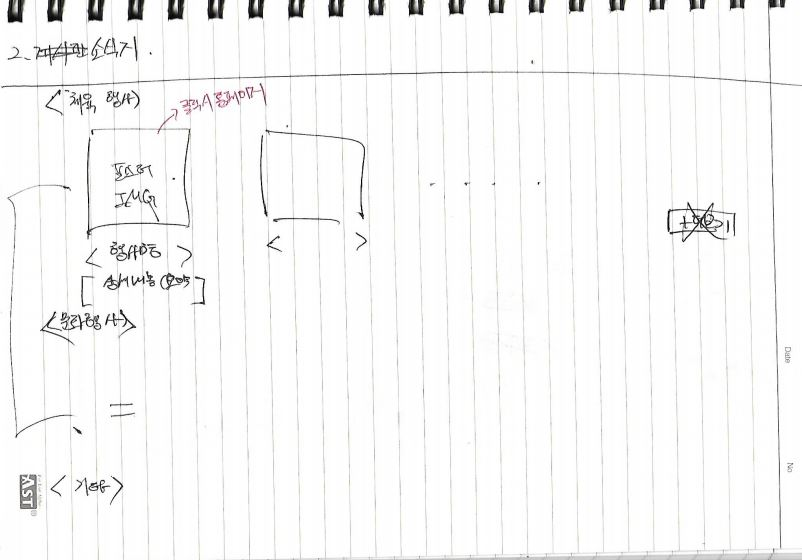 2. 소식지.
<체육 행사>
클릭시 홈페이지
포스터
IMG
<행사명>
[상세내용(요약)]
<문화행사>
=
<기타>
Date
No
AST